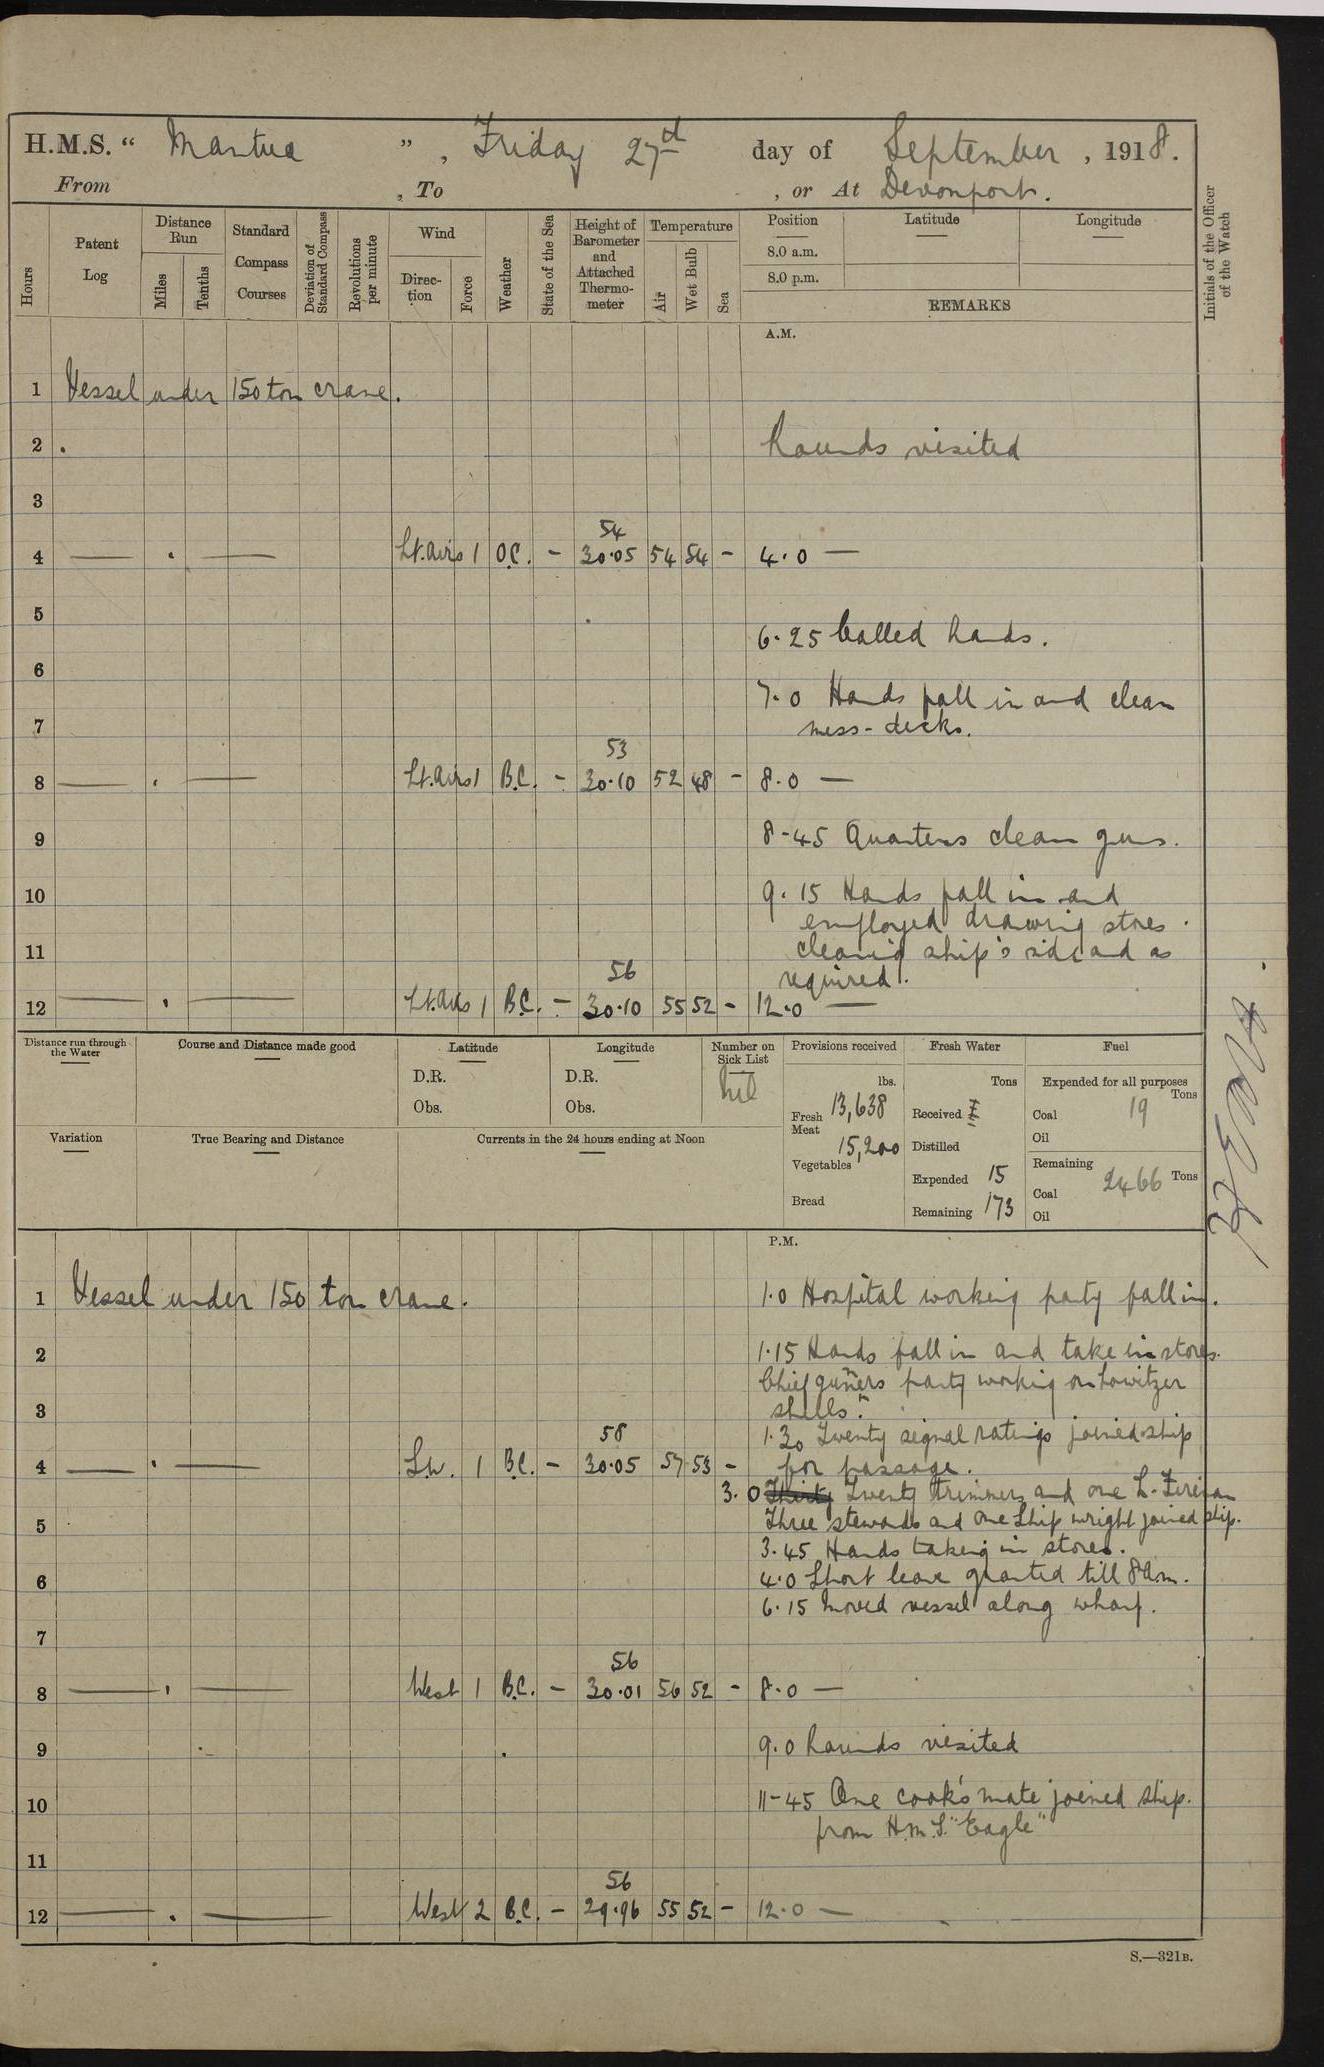 H.M.S. " Mantua ", Friday 27d day of September, 1918.
From , To , or At Devonport.
Hours
Patent Log
Distance Run
Miles
Tenths
Standard Compass Courses
Deviation of Standard Compass
Revolutions per minute
Wind
Direction
Force
Weather
State of the Sea
Height of Barometer and Attached Thermometer
Temperature
Air
Wet Bulb
Sea
Position
Latitude
Longitude
8.0 a.m.
8.0 p.m.
REMARKS
Initials of the Officer of the Watch
A.M.
1 Vessel under 150 ton crane.
2 Rounds visited
3
54
4 Lt. airs 1 O.C. - 30.05 54 54 - 4.0 —
5
6.25 Called hands.
6
7.0 Hands fall in and clean
7 mess-decks.
53
8 Lt. airs 1 B.C. - 30.10 52 48 - 8.0 —
9 8-45 Quarters clean guns.
10 9.15 Hands fall in and
employed drawing stores.
11 cleaning ship's side and as
56 required.
12 Lt. airs 1 B.C. - 30.10 55 52 - 12.0 —
Distance run through the Water
Course and Distance made good
Latitude
D.R.
Obs.
Longitude
D.R.
Obs.
Number on Sick List
nil
Provisions received
lbs.
Fresh Meat 13,638
Vegetables 15,200
Bread
Fresh Water
Tons
Received
Distilled
Expended 15
Remaining 173
Fuel
Expended for all purposes
Tons
Coal 19
Oil
Remaining
Coal 2466 Tons
Oil
Variation
True Bearing and Distance
Currents in the 24 hours ending at Noon
P.M.
1 Vessel under 150 ton crane. 1.0 Hospital working party fall in.
2 1.15 Hands fall in and take in stores.
Chief gunners party working on howitzer
3 shells.
58 1.30 Twenty signal ratings joined ship
4 S.W. 1 B.C. - 30.05 57 53 - for passage.
3.0 Thirty Twenty trimmers and one L-Fireman
5 Three stewards and one Shipwright joined ship.
3.45 Hands taking in stores.
6 4.0 Short leave granted till 8am.
6.15 Moved vessel along wharf.
7
56
8 West 1 B.C. - 30.01 56 52 - 8.0 —
9 9.0 Rounds visited
10 11-45 One cook's mate joined ship.
from H.M.S. "Eagle"
11
56
12 West 2 B.C. - 29.96 55 52 - 12.0 —
S.—321B.